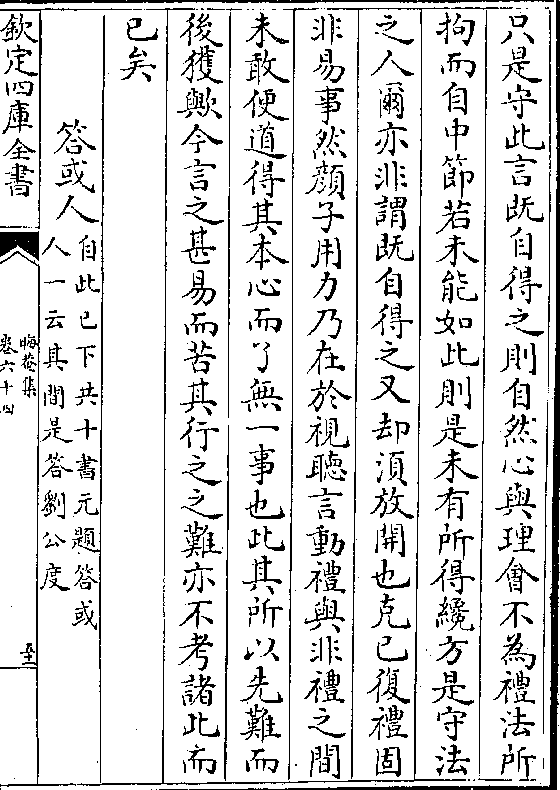 只是守此言既自得之則自然心與理會不為禮法所
拘而自中節若未能如此則是未有所得纔方是守法
之人爾亦非謂既自得之又却須放開也克已復禮固
非易事然顔子用力乃在於視聽言動禮與非禮之間
未敢便道得其本心而了無一事也此其所以先難而
後獲歟今言之甚易而苦其行之之難亦不考諸此而
已矣
答或人
自此已下共十書元題答或
人一云其間是答劉公度
欽定四庫全書
晦菴集
卷六十四